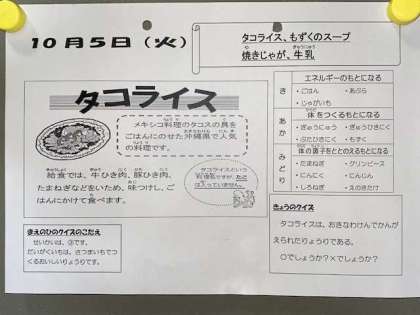 10月5日（火）
タコライス、もずくのスープ
焼きじゃが、牛乳
タコライス
メキシコ料理のタコスの具を
ごはんにのせた沖縄県で人気
の料理です。
給食では、牛ひき肉、豚ひき肉、
たまねぎなどをいため、味つけし、ご
はんにかけて食べます。
タコライスという
料理名ですが、たこ
は入っていません。
エネルギーのもとになる
き
・ごはん ・あぶら
・じゃがいも
あか
体をつくるもとになる
・ぎゅうにゅう ・ぎゅうひきにく
・ぶたひきにく ・もずく
みどり
体の調子をととのえるもとになる
・たまねぎ ・グリンピース
・にんにく ・にんじん
・しろねぎ ・えのきたけ
まえのひのクイズのこたえ
せいかいは、③です。
だいがくいもは、さつまいもでつ
くるおいしいりょうりです。
きょうのクイズ
タコライスは、おきなわけんでかんが
えられたりょうりである。
〇でしょうか？×でしょうか？